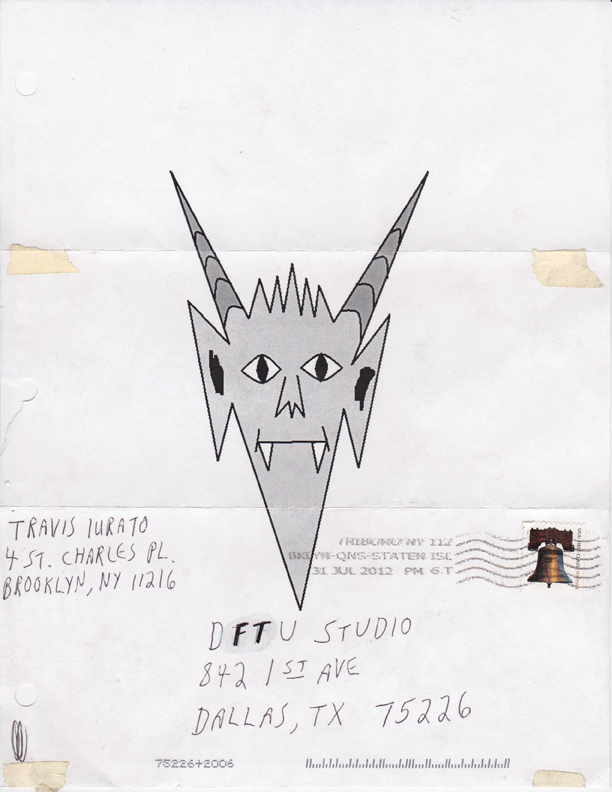 TRAVIS IURATO
4 ST. CHARLES PL.
BROOKLYN, NY 11216
NY 112
BKLYN-QNS-STATEN ISL
31 JUL 2012 PM 6 T
DFTU STUDIO
842 1ST AVE
DALLAS, TX 75226
75226+2006